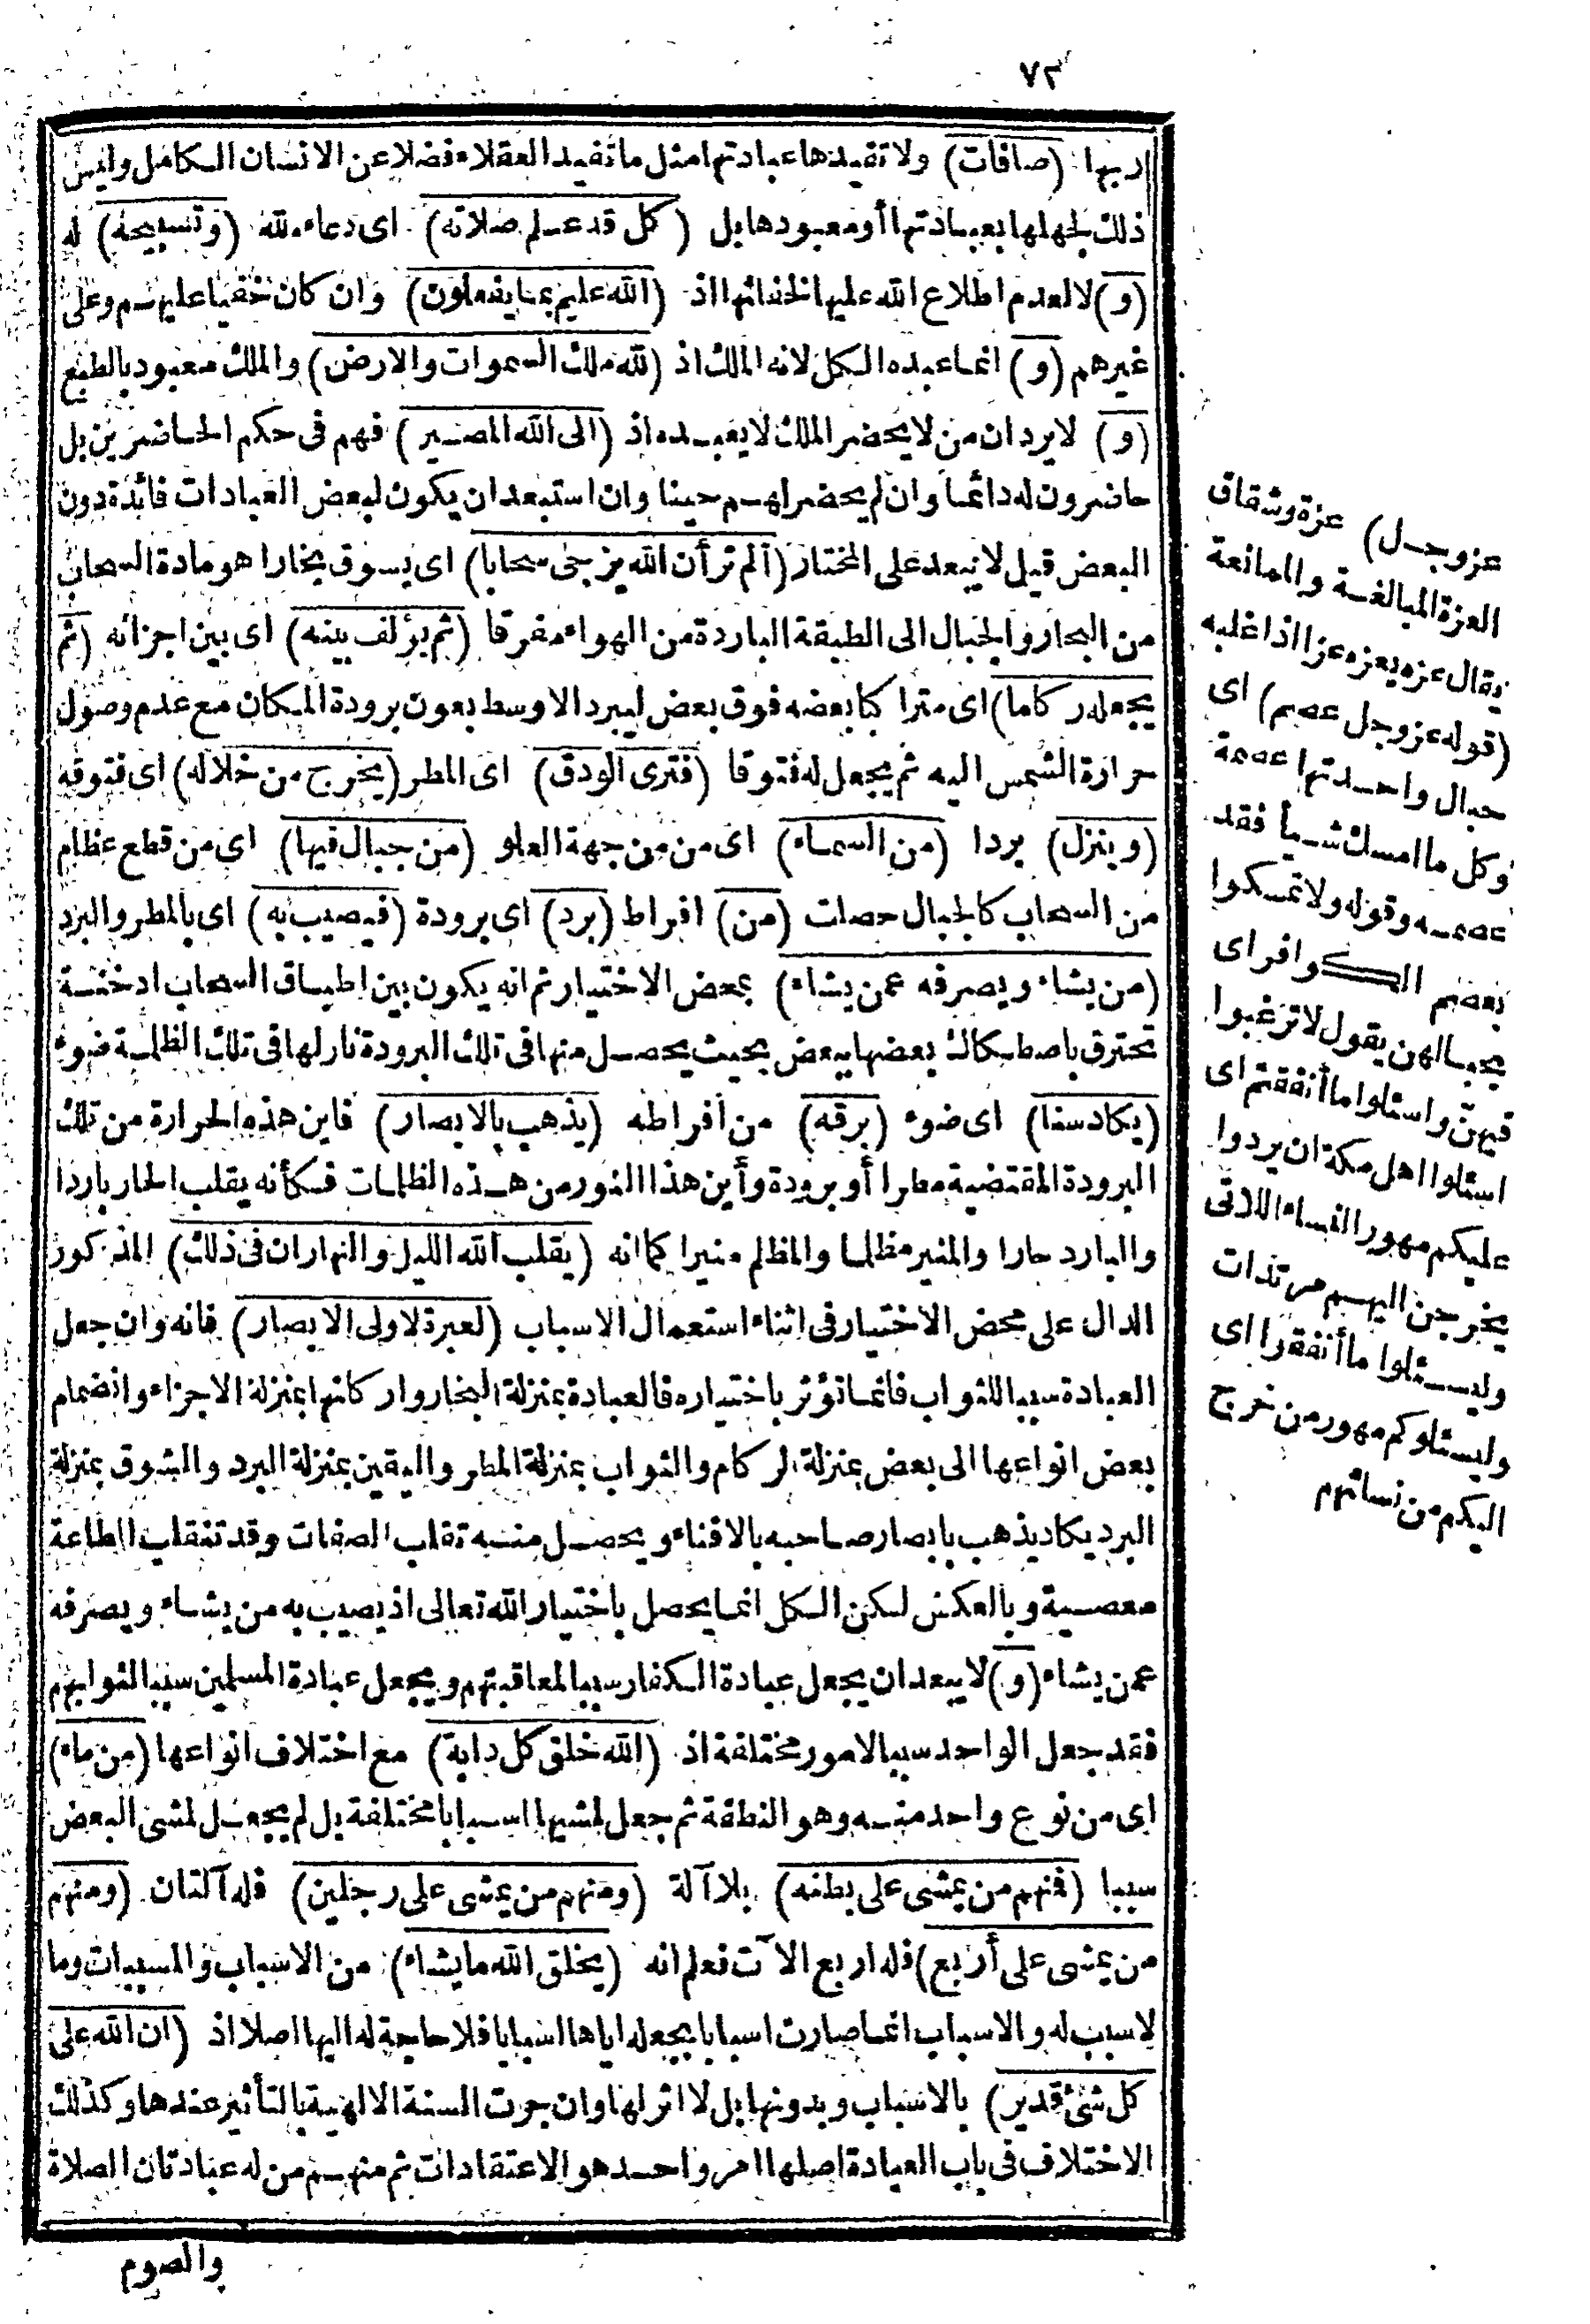 ٧٢
ربها (صافات) ولا تفيدها عبادتها مثل ما تفيد العقلاء فضلا عن الانسان الكامل وليس
ذلك لجهلها بعبادتها أو معبودها بل (كل قد علم صلاته) اى دعاءه لله (وتسبيحه) له
(و) لا لعدم اطلاع الله عليها لخفائها اذ (الله عليم بما يفعلون) وان كان خفيا عليهم وعلى
غيرهم (و) انما عبده الكل لانه الملك اذ (لله ملك السموات والارض) والملك معبود بالطبع
(و) لا يرد ان من لا يحضر الملك لا يعبده اذ (الى الله المصير) فهم فى حكم الحاضرين بل
حاضرون له دائما وان لم يحضر لهم حينا وان استبعد ان يكون لبعض العبادات فائدة دون
البعض قيل لا يبعد على المختار (ألم تر أن الله يزجى سحابا) اى يسوق بخارا هو مادة السحاب
من البحار والجبال الى الطبقة الباردة من الهواء مفرقا (ثم يؤلف بينه) اى بين اجزائه (ثم
يجعله ركاما) اى متراكبا بعضه فوق بعض ليبرد الاوسط بعون برودة المكان مع عدم وصول
حرارة الشمس اليه ثم يجعل له فتوقا (فترى الودق) اى المطر (يخرج من خلاله) اى فتوقه
(وينزل) بردا (من السماء) اى من من جهة العلو (من جبال فيها) اى من قطع عظام
من السحاب كالجبال حصلت (من) افراط (برد) اى برودة (فيصيب به) اى بالمطر والبرد
(من يشاء ويصرفه عمن يشاء) بمحض الاختيار ثم انه يكون بين اطباق السحاب ادخنة
تحترق باصطكاك بعضها ببعض بحيث يحصل منها فى تلك البرودة نار لها فى تلك الظلمة ضوء
(يكاد سنا) اى ضوء (برقه) من افراطه (يذهب بالابصار) فاين هذه الحرارة من تلك
البرودة المقتضية مطرا أو برودة وأين هذا النور من هذه الظلمات فكأنه يقلب الحار باردا
والبارد حارا والمنير مظلما والمظلم منيرا كما انه (يقلب الله الليل والنهار ان فى ذلك) المذكور
الدال على محض الاختيار فى اثناء استعمال الاسباب (لعبرة لاولى الابصار) فانه وان جعل
العبادة سببا للثواب فانما تؤثر باختياره فالعبادة بمنزلة البخار واركانها بمنزلة الاجزاء وانضمام
بعض انواعها الى بعض بمنزلة الركام والثواب بمنزلة المطر واليقين بمنزلة البرد والشوق بمنزلة
البرد يكاد يذهب بابصار صاحبه بالافناء ويحصل منه تقلب الصفات وقد تنقلب الطاعة
معصية وبالعكس لكن الكل انما يحصل باختيار الله تعالى اذ يصيب به من يشاء ويصرفه
عمن يشاء (و) لا يبعد ان يجعل عبادة الكفار سببا لمعاقبتهم ويجعل عبادة المسلمين سببا لثوابهم
فقد جعل الواحد سببا لامور مختلفة اذ (الله خلق كل دابة) مع اختلاف انواعها (من ماء)
اى من نوع واحد منه وهو النطفة ثم جعل لمشيها اسبابا مختلفة بل لم يجعل لمشى البعض
سببا (فمنهم من يمشى على بطنه) بلا آلة (ومنهم من يمشى على رجلين) فله آلتان (ومنهم
من يمشى على أربع) فله اربع الآت فعلم انه (يخلق الله ما يشاء) من الاسباب والمسببات وما
لا سبب له والاسباب انما صارت اسبابا بجعله اياها اسبابا فلا حاجة له اليها اصلا اذ (ان الله على
كل شئ قدير) بالاسباب وبدونها بل لا اثر لها وان جرت السنة الالهية بالتأثير عندها وكذلك
الاختلاف فى باب العبادة اصلها امر واحد هو الاعتقادات ثم منهم من له عبادتان الصلاة
والصوم
عز وجل) عزة وشقاق
العزة المبالغة والممانعة
يقال عزه يعزه عزا اذا غلبه
(قوله عز وجل عصم) اى
حبال واحدتها عصمة
وكل ما امسك شيأ فقد
عصمه وقوله ولا تمسكوا
بعصم الكوافر اى
بحبالهن يقول لا ترغبوا
فيهن واسئلوا ما أنفقتم اى
اسئلوا اهل مكة ان يردوا
عليكم مهور النساء اللاتى
يخرجن اليهم مرتدات
وليسئلوا ما أنفقوا اى
وليسئلوكم مهور من خرج
اليكم من نسائهم